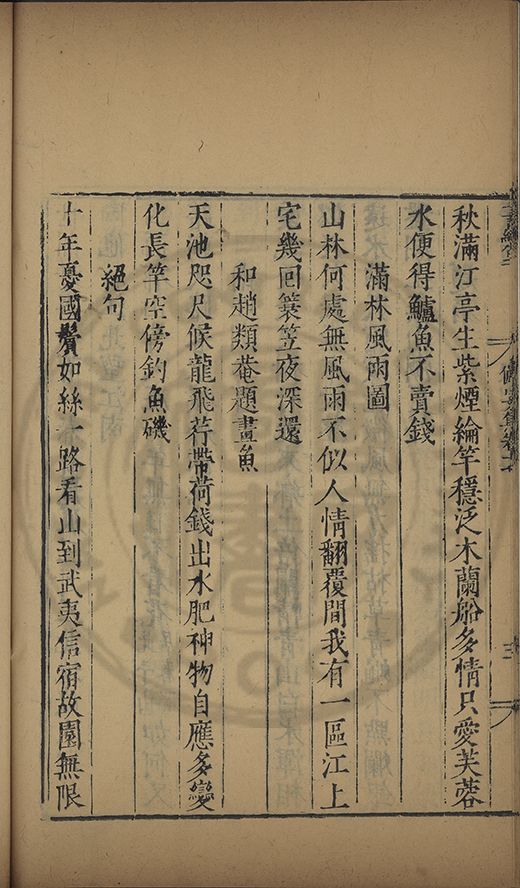 秋滿汀亭生紫煙綸竿穩泛木蘭船多情只愛芙蓉
水便得鱸魚不賣錢
滿林風雨圖
山林何處無風雨不似人情翻覆間我有一區江上
宅幾回簑笠夜深還
和趙類菴題畫魚
天池咫尺候龍飛荇帶荷錢出水肥神物自應多變
化長竿空傍釣魚磯
絕句
十年憂國鬢如絲一路看山到武夷信宿故園無限